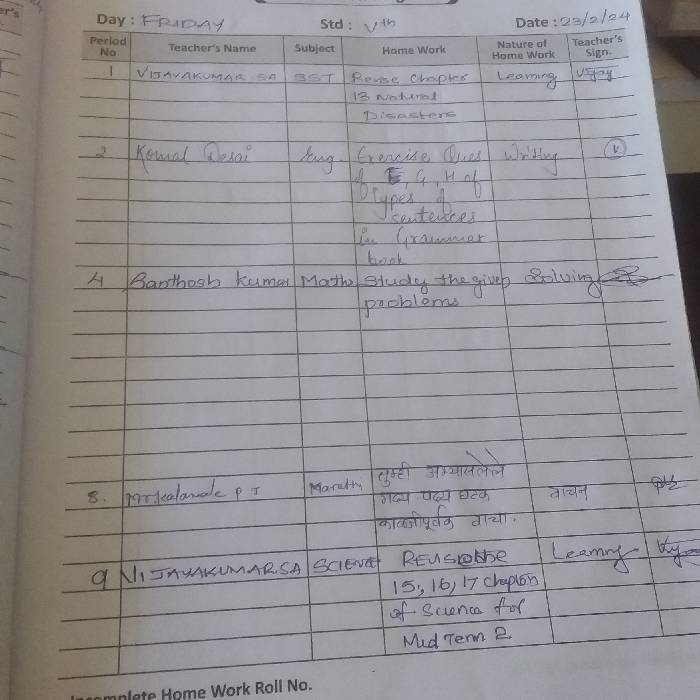 Day : FRIDAY Std : Vth Date : 23/2/24
Period No Teacher's Name Subject Home Work Nature of Home Work Teacher's Sign.
1 VIJAYAKUMAR SA SST Revise Chapter Learning Vijay
13 Natural
Disasters
2 Komal Desai Eng. Exercise Ques Writing
of E, G, H of
Types of
sentences
in Grammar
book
4 Santhosh Kumar Maths Study the given Solving
problems
8. Mr. Kalamale P J Marathi तुम्ही अभ्यासलेले
गद्य पद्य घटक वाचन
काळजीपूर्वक वाचा.
9 VIJAYAKUMAR SA SCIENCE REVISE the Learning
15, 16, 17 Chapters
of Science for
Mid Term 2
Incomplete Home Work Roll No.